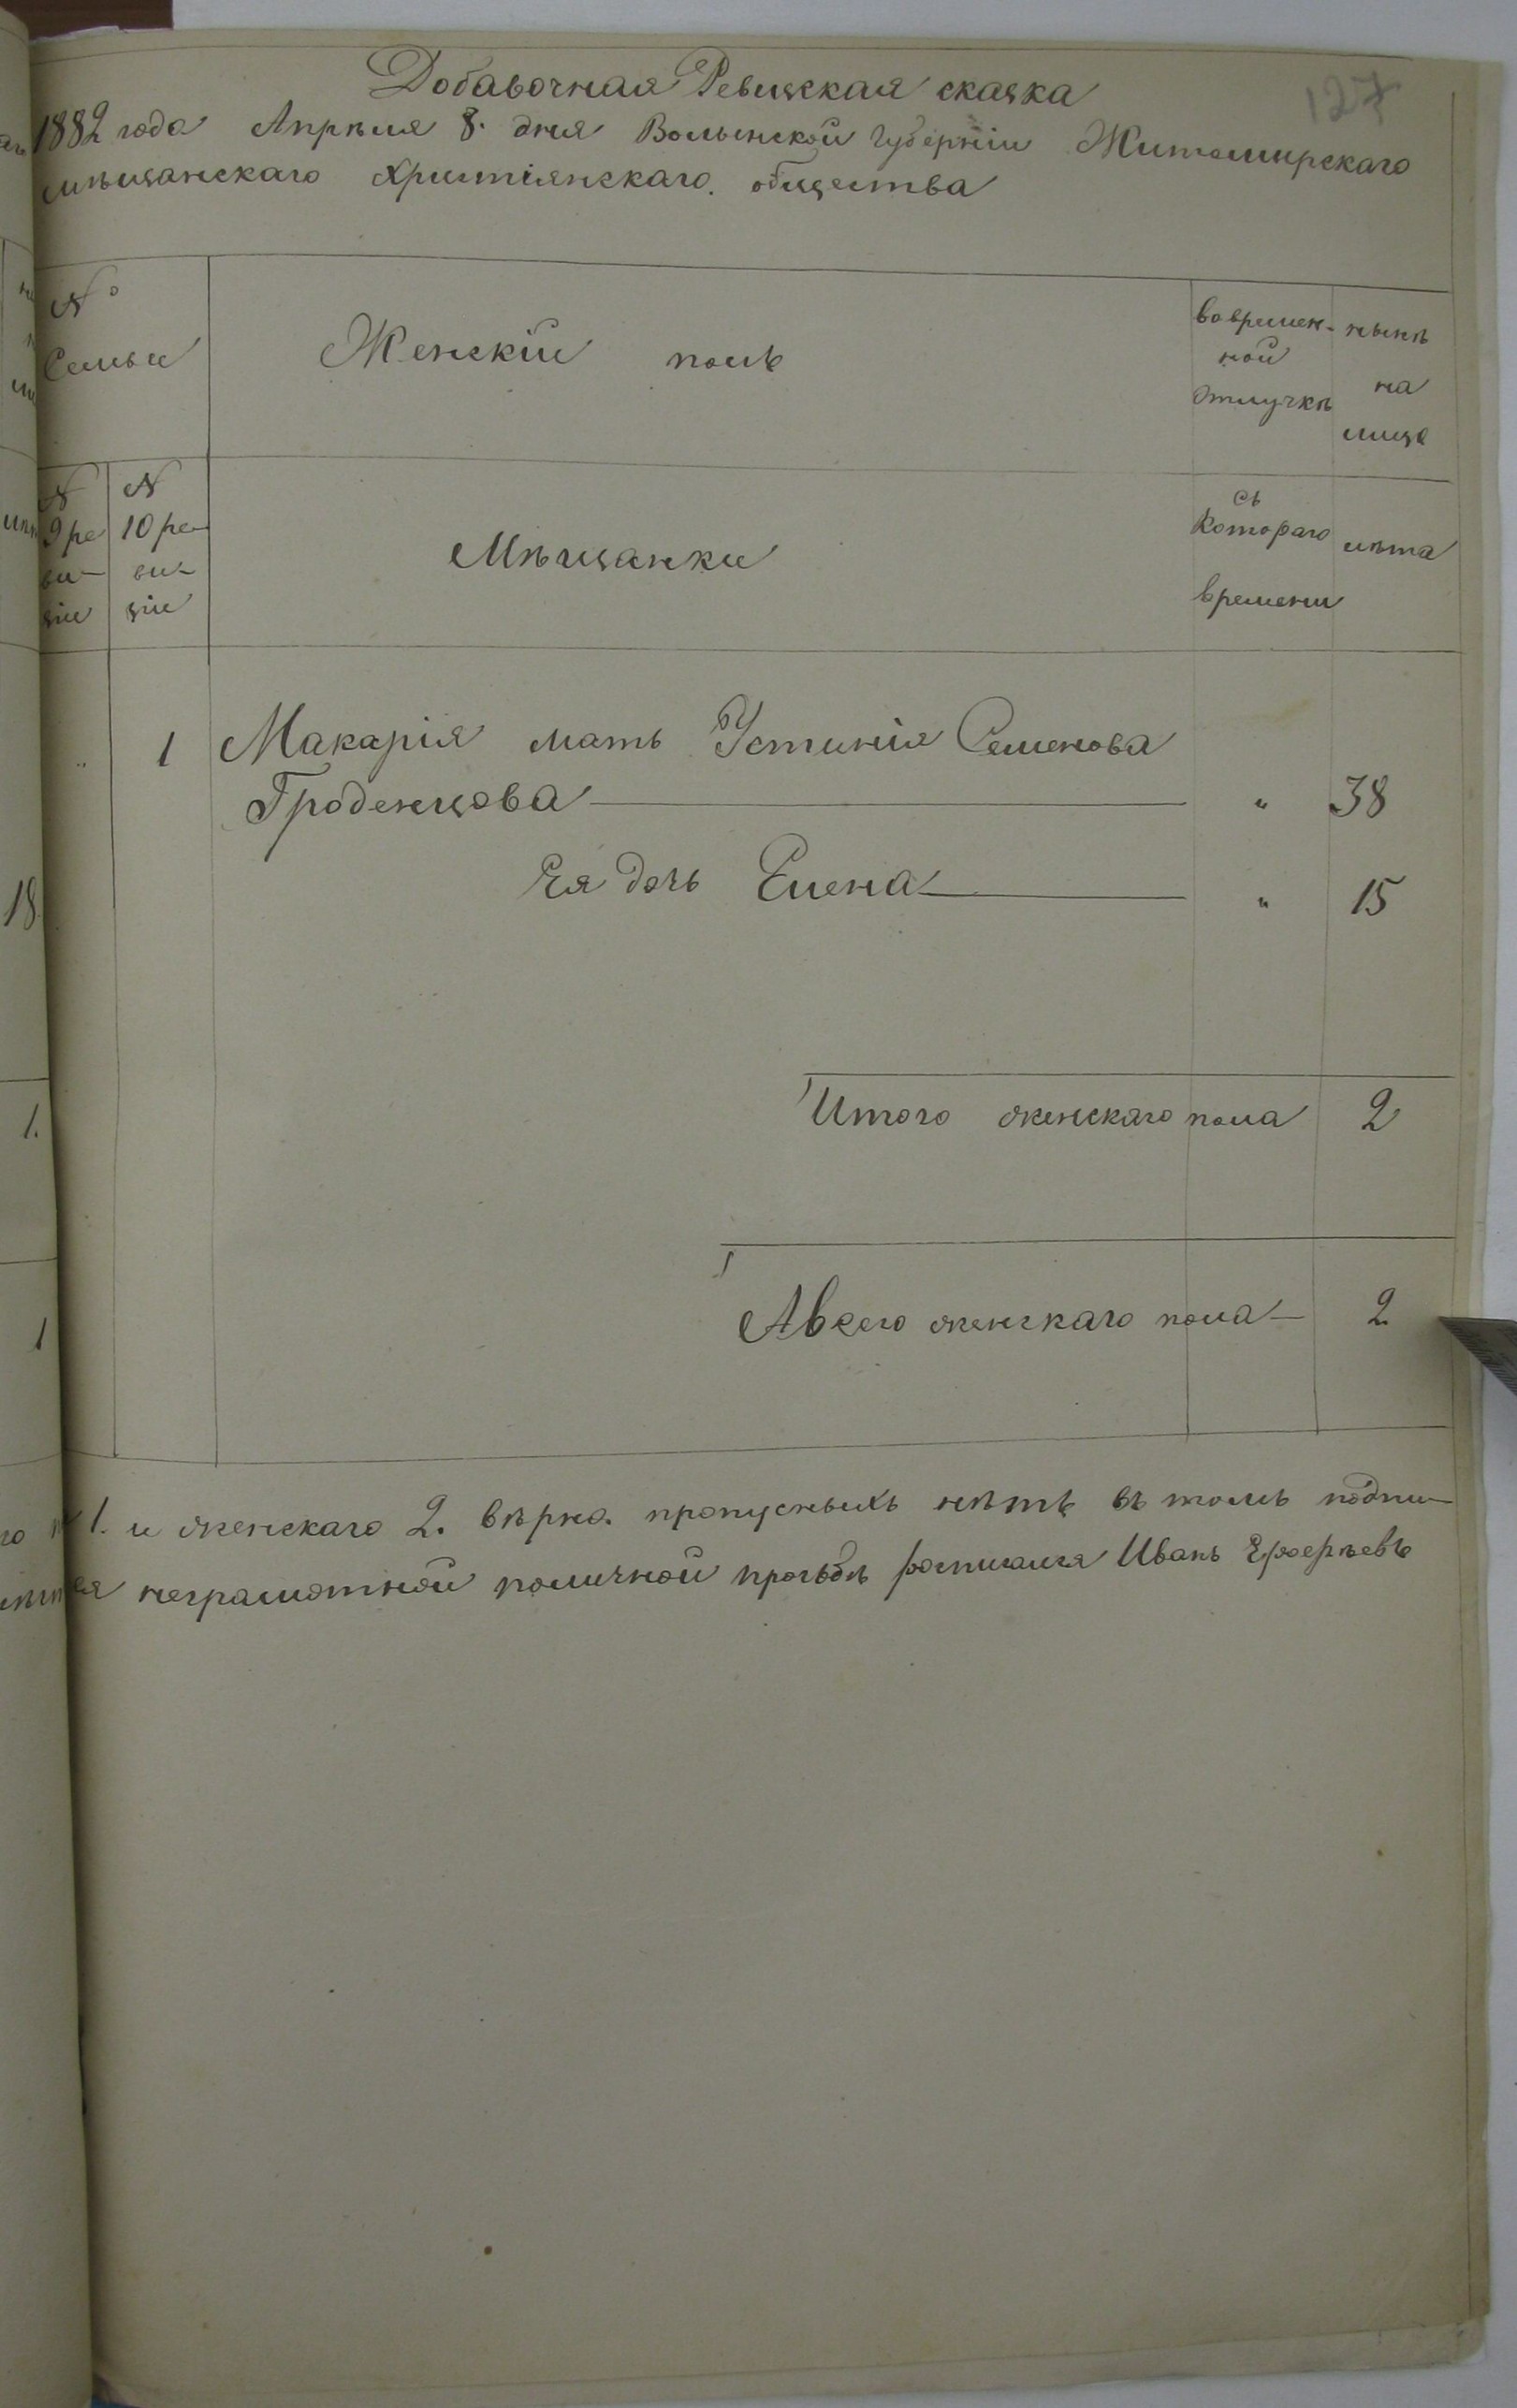 127
Добавочная Ревизская сказка
1882 года Апрѣля 8. дня Волынской Губерніи Житомирскаго
мѣщанскаго Христіянскаго. общества
№
Семьи
Женскій полъ
во времен-
ной
отлучкѣ
нынѣ
на
лицо
N
9 ре
ви-
зіи
N
10 ре-
ви-
зіи
Мѣщанки
съ
котораго
времени
лѣта
" 1 Макарія мать Устинія Семенова
Гроденцова " 38
Ея дочь Елена " 15
Итого женскаго пола 2
А всего женскаго пола 2
1. и женскаго 2. вѣрно. пропусныхъ нѣтъ въ томъ подпи-
неграмотной поличной прозьбѣ росписался Иванъ
18
1.
1